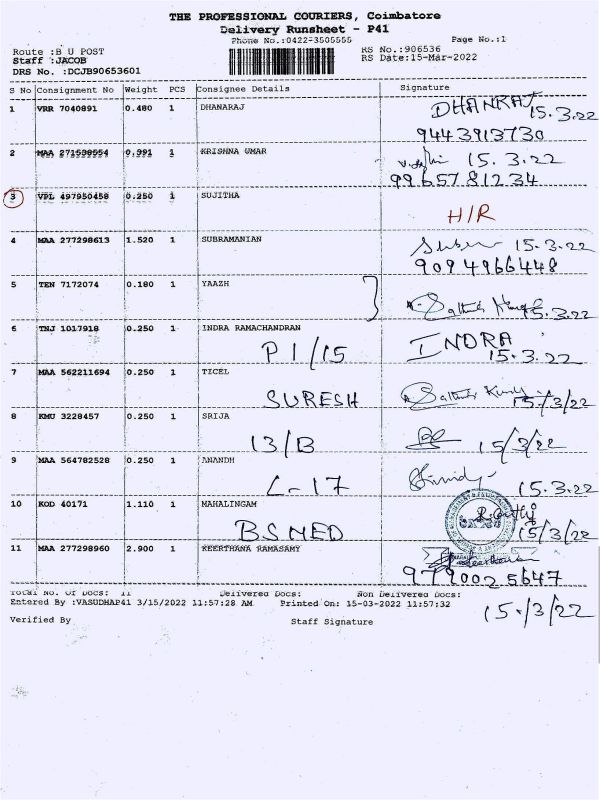 THE PROFESSIONAL COURIERS, Coimbatore
Delivery Runsheet - P41
Phone No.:0422-3505555 Page No.:1
Route :B U POST RS No.:906536
Staff :JACOB RS Date:15-Mar-2022
DRS No. :DCJB90653601
S No Consignment No Weight PCS Consignee Details Signature
1 VRR 7040891 0.480 1 DHANARAJ DHANRAJ 15.3.22
9443913730
2 MAA 271598554 0.991 1 KRISHNA UMAR 15.3.22
9965781234
3 VPL 497950458 0.250 1 SUJITHA
H/R
4 MAA 277298613 1.520 1 SUBRAMANIAN 15.3.22
9094966448
5 TEN 7172074 0.180 1 YAAZH
15.3.22
6 TNJ 1017918 0.250 1 INDRA RAMACHANDRAN INDRA
P1/15 15.3.22
7 MAA 562211694 0.250 1 TICEL
SURESH 15/3/22
8 KMU 3228457 0.250 1 SRIJA
13/B 15/3/22
9 MAA 564782528 0.250 1 ANANDH
L-17 15.3.22
10 KOD 40171 1.110 1 MAHALINGAM
BSMED 15/3/22
11 MAA 277298960 2.900 1 KEERTHANA RAMASAMY
9790025647
Total No. Of Docs: 11 Delivered Docs: Non Delivered Docs:
Entered By :VASUDHAP41 3/15/2022 11:57:28 AM Printed On: 15-03-2022 11:57:32
15/3/22
Verified By Staff Signature